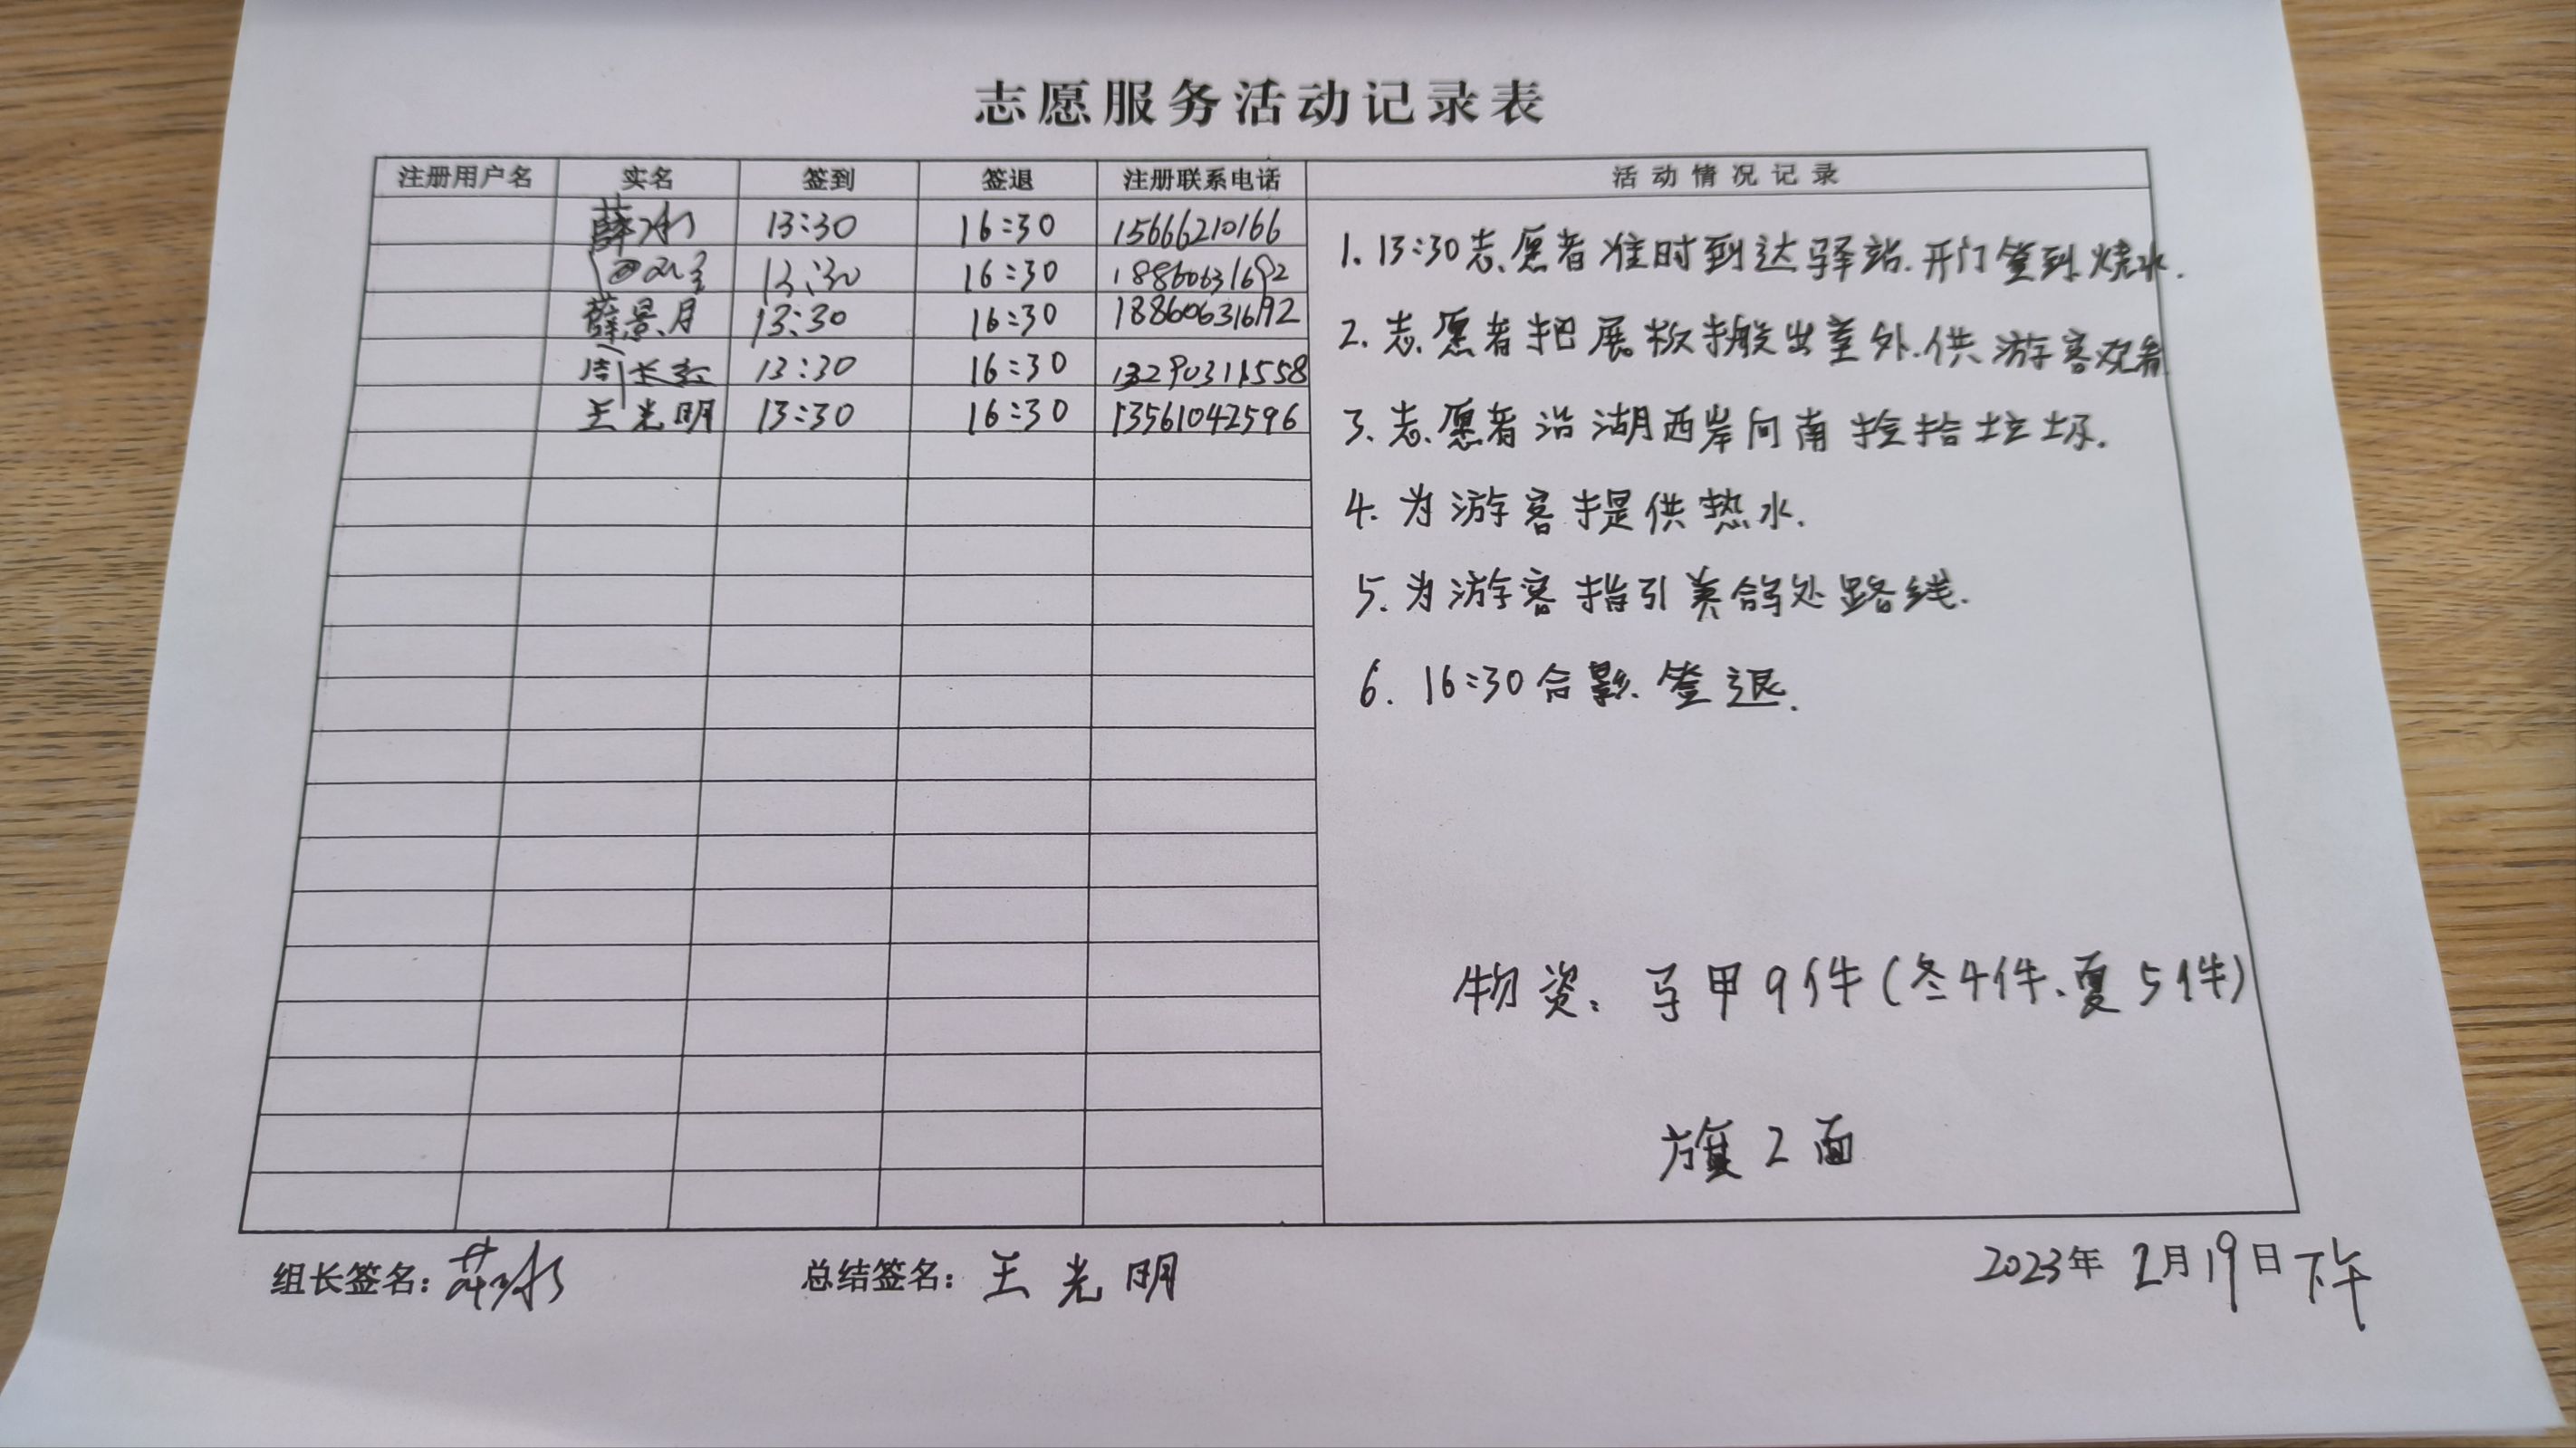 志愿服务活动记录表
注册用户名 实名 签到 签退 注册联系电话 活动情况记录
薛冰 13:30 16:30 15666210166
13:30 16:30 18860631692
薛景月 13:30 16:30 18860631692
周长 13:30 16:30 13290311558
王光明 13:30 16:30 13561042596
1. 13:30志愿者准时到达驿站.开门签到烧水.
2. 志愿者把展板搬出室外.供游客观看
3. 志愿者沿湖西岸向南捡拾垃圾.
4. 为游客提供热水.
5. 为游客指引美鸽处路线.
6. 16:30合影.签退.
物资: 马甲9件(冬4件、夏5件)
旗2面
组长签名: 薛冰 总结签名: 王光明 2023年2月19日下午